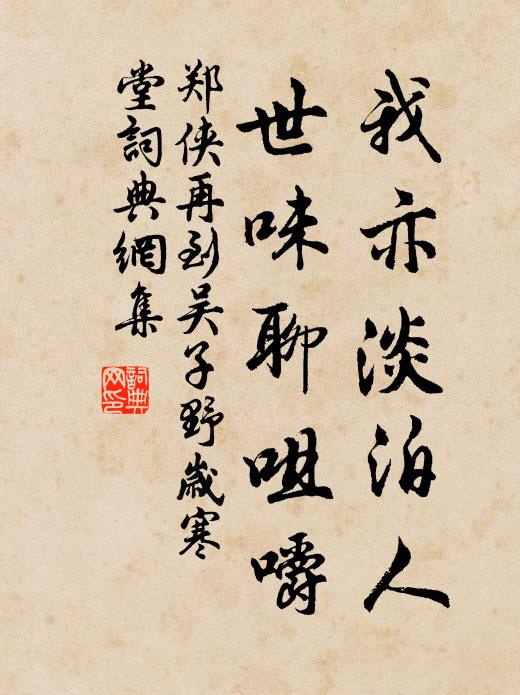 我亦淡泊人
世味聊咀嚼
郑侠再到吴子野岁寒
堂詞典網集
詞典
网印